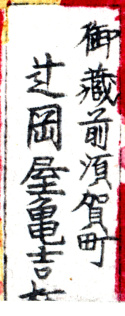 御藏前須賀町
辻岡屋亀吉